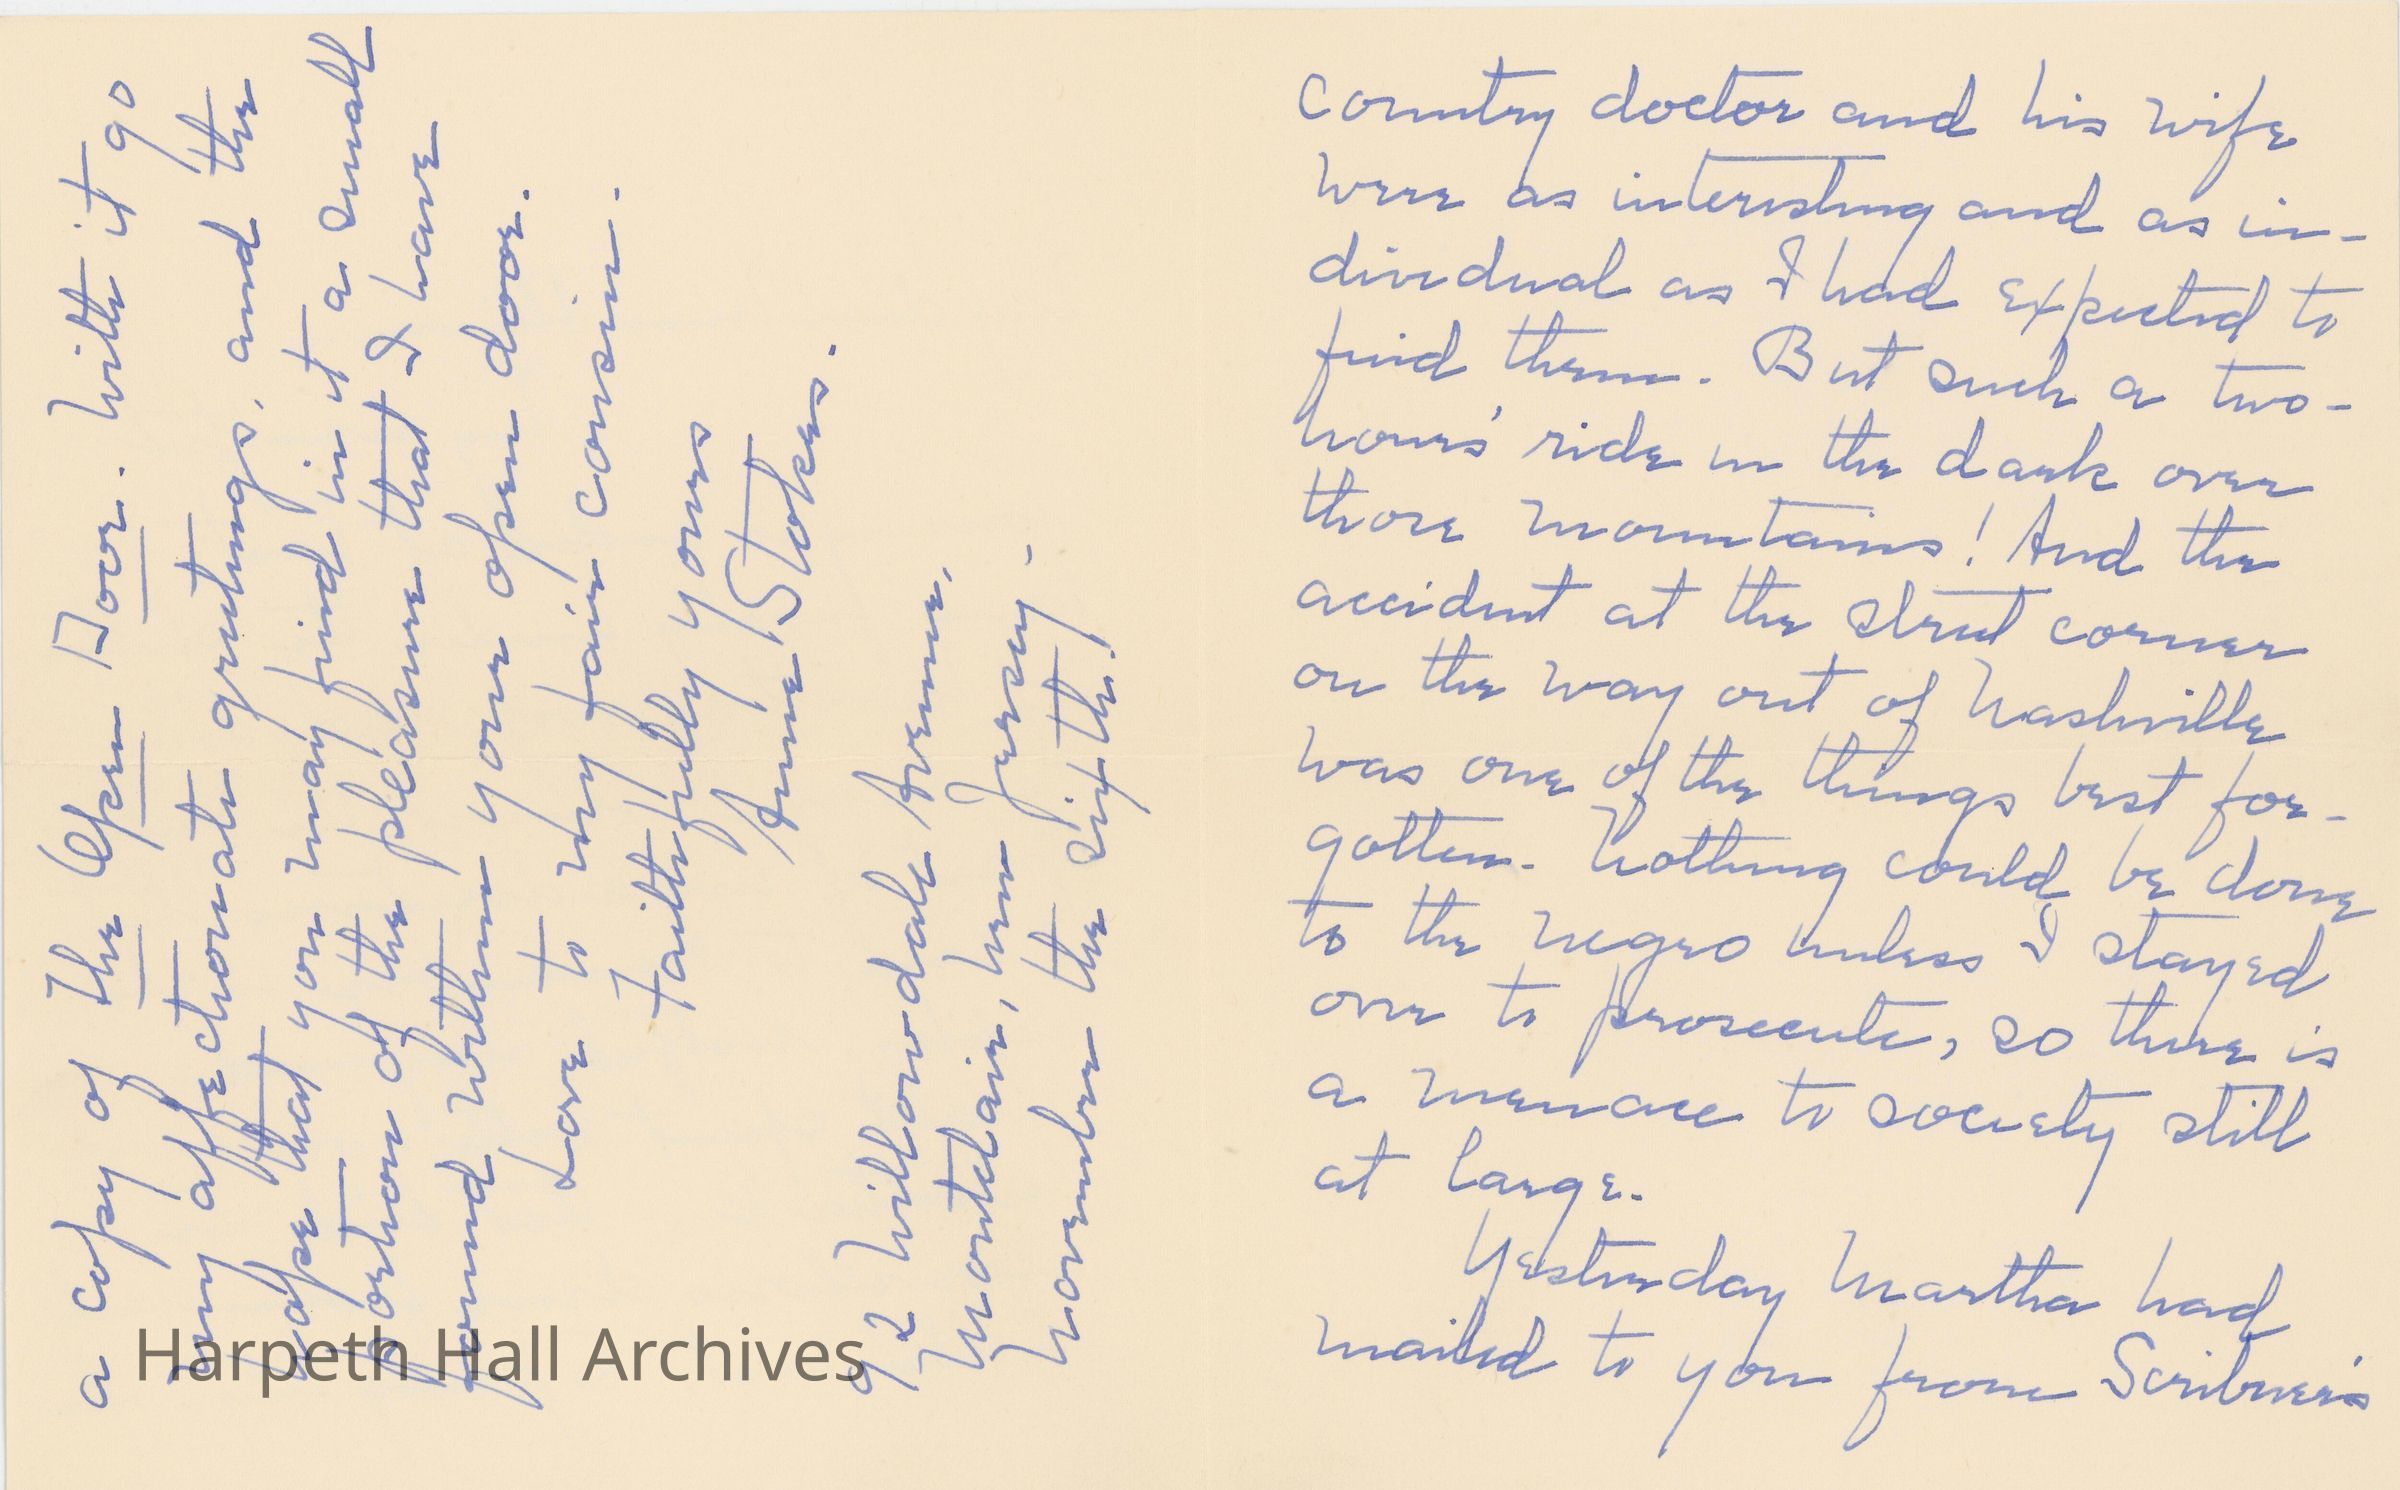 country doctor and his wife
were as interesting and as in-
dividual as I had expected to
find them. But such a two-
hours' ride in the dark over
those mountains! And the
accident at the street corner
on the way out of Nashville
was one of the things best for-
gotten. Nothing could be done
to the negro unless I stayed
over to prosecute, so there is
a menace to society still
at large.
Yesterday Martha had
mailed to you from Scribner's
a copy of The Open Door. With it go
my affectionate greetings, and the
hope that you may find in it a small
portion of the pleasure that I have
found within your open door.
Love to my fair cousin.
Faithfully yours
Anne Stokes.
92 Willowdale Avenue,
Montclair, New Jersey,
November the sixth.
Harpeth Hall Archives